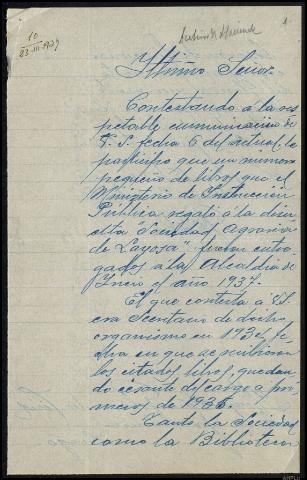 10
23-III-1939
1
Iltmo Señor.
Contestando a la res
petable comunicación de
V. S. fecha 6 del actual, le
participo que un número
pequeño de libros que el
Ministerio de Instrucción
Pública regaló a la disu
elta "Sociedad Agraria
de Layosa" fueron entre
gados a la Alcaldía de
Yncio el año 1937.
El que contesta a V. S.
era Secretario de dicho
organismo en 1932, fe
cha en que se recibieron
los citados libros, quedan
do cesante del cargo a pri
meros de 1935.
Tanto la Sociedad
como la Biblioteca